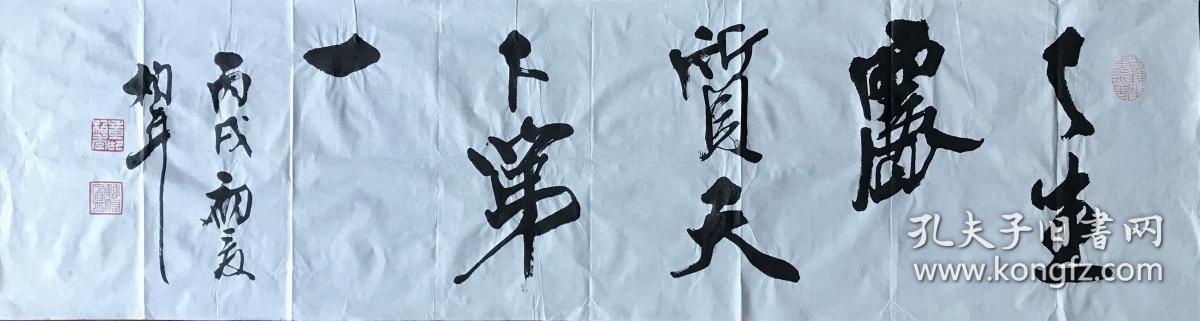 天生
麗
質天
下第
一
丙戌初夏
柏年
孔夫子旧书网
www.kongfz.com